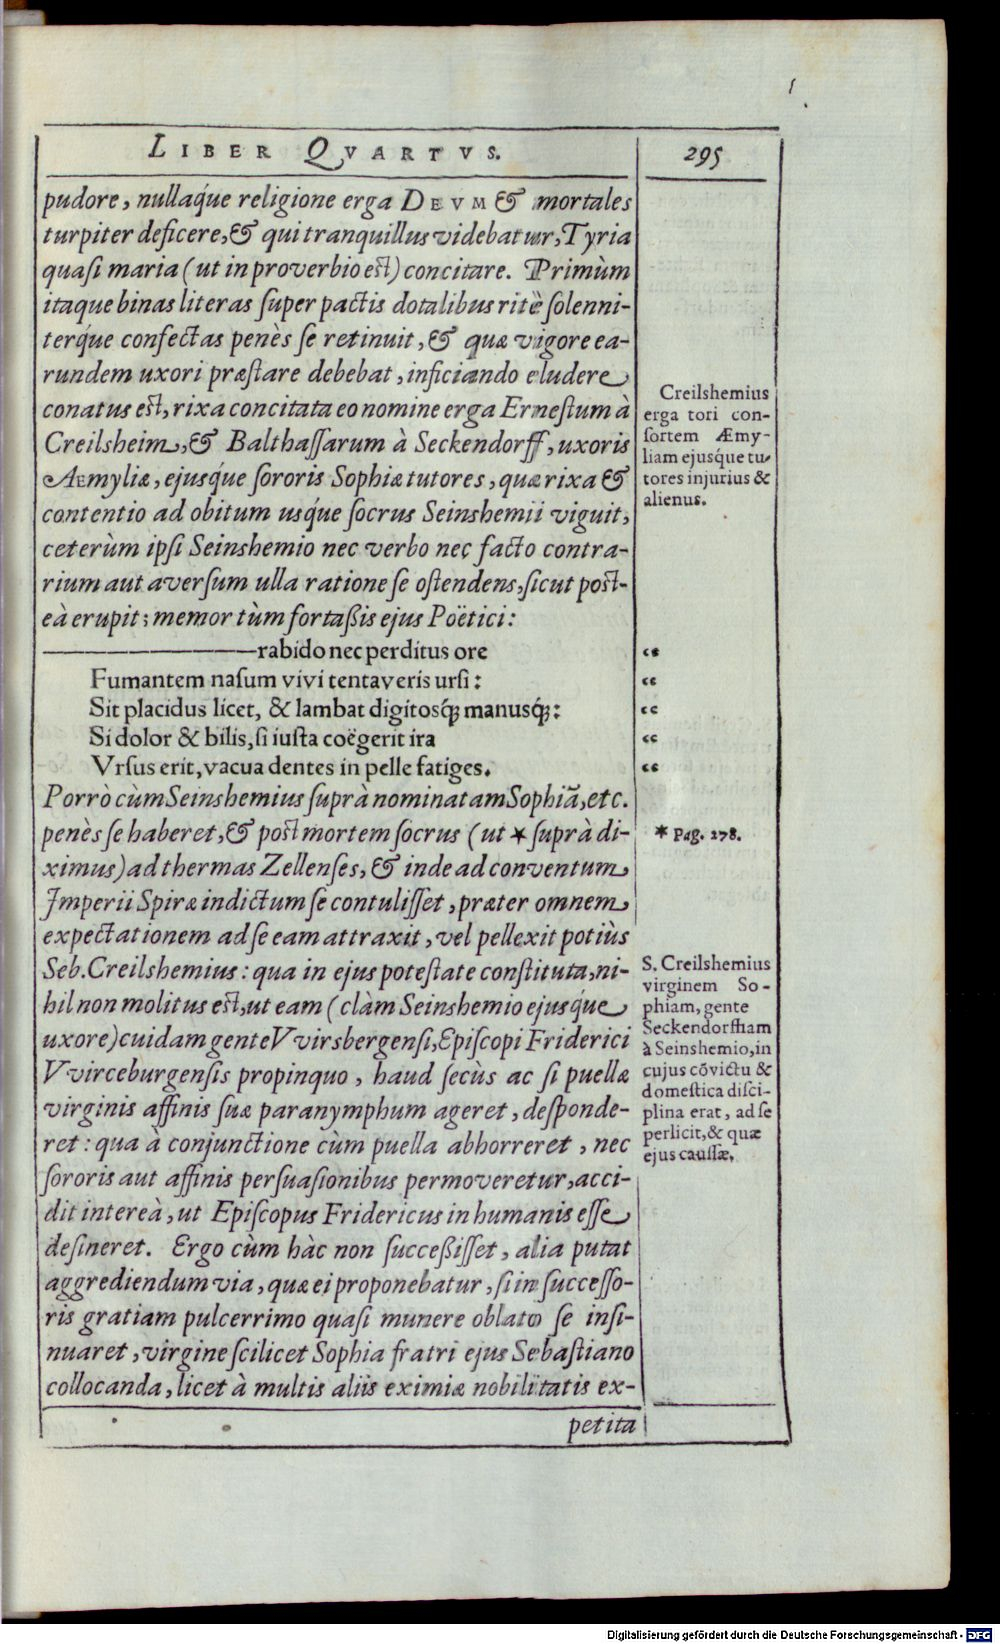 LIBER QVARTVS.
295
pudore, nullaq́ue religione erga DEVM & mortales
turpiter deficere, & qui tranquillus videbatur, Tyria
quasi maria (ut in proverbio est) concitare. Primùm
itaque binas literas super pactis dotalibus ritè solenni-
terq́ue confectas penès se retinuit, & quæ vigore ea-
rundem uxori præstare debebat, inficiando eludere
conatus est, rixa concitata eo nomine erga Ernestum à
Creilsheim, & Balthassarum à Seckendorff, uxoris
Aemyliæ, ejusq́ue sororis Sophiæ tutores, quæ rixa &
contentio ad obitum usq́ue socrus Seinshemii viguit,
ceterùm ipsi Seinshemio nec verbo nec facto contra-
rium aut aversum ulla ratione se ostendens, sicut post-
eà erupit; memor tùm fortaßis ejus Poëtici:
rabido nec perditus ore
Fumantem nasum vivi tentaveris ursi:
Sit placidus licet, & lambat digitosq́; manusq́;:
Si dolor & bilis, si iusta coëgerit ira
Vrsus erit, vacua dentes in pelle fatiges.
Porrò cùm Seinshemius suprà nominatam Sophiã, etc.
penès se haberet, & post mortem socrus (ut * suprà di-
ximus) ad thermas Zellenses, & inde ad conventum
Imperii Spiræ indictum se contulisset, præter omnem
expectationem ad se eam attraxit, vel pellexit potiùs
Seb. Creilshemius: qua in ejus potestate constituta, ni-
hil non molitus est, ut eam (clàm Seinshemio ejusq́ue
uxore) cuidam gente VVirsbergensi, Episcopi Friderici
VVirceburgensis propinquo, haud secùs ac si puellæ
virginis affinis suæ paranymphum ageret, desponde-
ret: qua à conjunctione cùm puella abhorreret, nec
sororis aut affinis persuasionibus permoveretur, acci-
dit intereà, ut Episcopus Fridericus in humanis esse
desineret. Ergo cùm hàc non succeßisset, alia putat
aggrediendum via, quæ ei proponebatur, si in successo-
ris gratiam pulcerrimo quasi munere oblato se insi-
nuaret, virgine scilicet Sophia fratri ejus Sebastiano
collocanda, licet à multis aliis eximiæ nobilitatis ex-
petita
Creilshemius
erga tori con-
sortem Æmy-
liam ejusq́ue tu-
tores injurius &
alienus.
“
“
“
“
“
* Pag. 278.
S. Creilshemius
virginem So-
phiam, gente
Seckendorffiam
à Seinshemio, in
cujus cõvictu &
domestica disci-
plina erat, ad se
perlicit, & quæ
ejus caussæ.
Digitalisierung gefördert durch die Deutsche Forschungsgemeinschaft - DFG